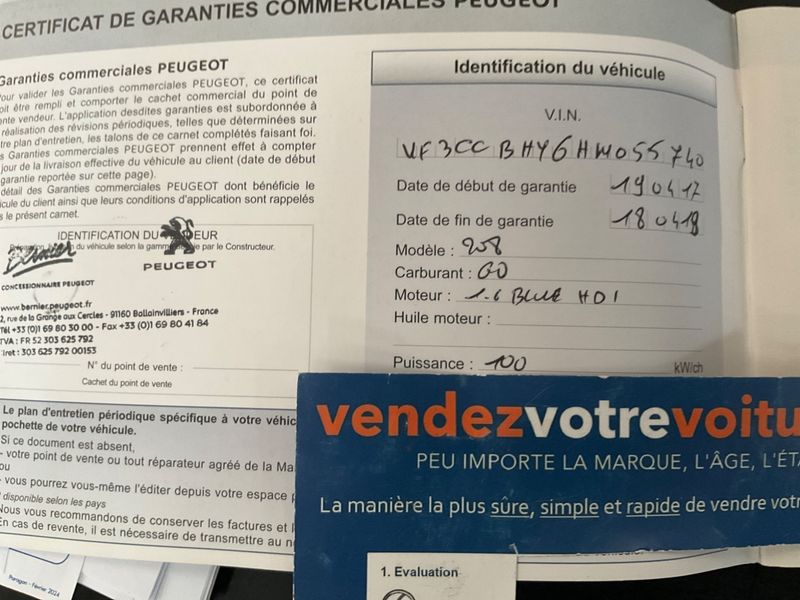 CERTIFICAT DE GARANTIES COMMERCIALES PEUGEOT
Garanties commerciales PEUGEOT
Pour valider les Garanties commerciales PEUGEOT, ce certificat
doit être rempli et comporter le cachet commercial du point de
vente vendeur. L'application desdites garanties est subordonnée à
réalisation des révisions périodiques, telles que déterminées sur
tre plan d'entretien, les talons de ce carnet complétés faisant foi.
s Garanties commerciales PEUGEOT prennent effet à compter
jour de la livraison effective du véhicule au client (date de début
garantie reportée sur cette page).
détail des Garanties commerciales PEUGEOT dont bénéficie le
icule du client ainsi que leurs conditions d'application sont rappelés
s le présent carnet.
IDENTIFICATION DU EUR
du véhicule selon la gamme par le Constructeur.
Bernier
CONCESSIONNAIRE PEUGEOT
PEUGEOT
www.bernier.peugeot.fr
2, rue de la Grange aux Cercles - 91160 Ballainvilliers - France
Tél +33 (0)1 69 80 30 00 - Fax +33 (0)1 69 80 41 84
TVA : FR 52 303 625 792
iret : 303 625 792 00153
N° du point de vente :
Cachet du point de vente
Le plan d'entretien périodique spécifique à votre véhic
pochette de votre véhicule.
Si ce document est absent,
- votre point de vente ou tout réparateur agréé de la Ma
ou
- vous pourrez vous-même l'éditer depuis votre espace p
disponible selon les pays
Nous vous recommandons de conserver les factures et l
En cas de revente, il est nécessaire de transmettre au n
Paragon - Février 2024
Identification du véhicule
V.I.N.
VF3CCBHY6HW055740
Date de début de garantie 190417
Date de fin de garantie 180418
Modèle : 208
Carburant : GO
Moteur : 1.6 BLUE HDI
Huile moteur :
Puissance : 100 kW/ch
vendezvotrevoitu
PEU IMPORTE LA MARQUE, L'ÂGE, L'ÉTA
La manière la plus sûre, simple et rapide de vendre votr
1. Evaluation